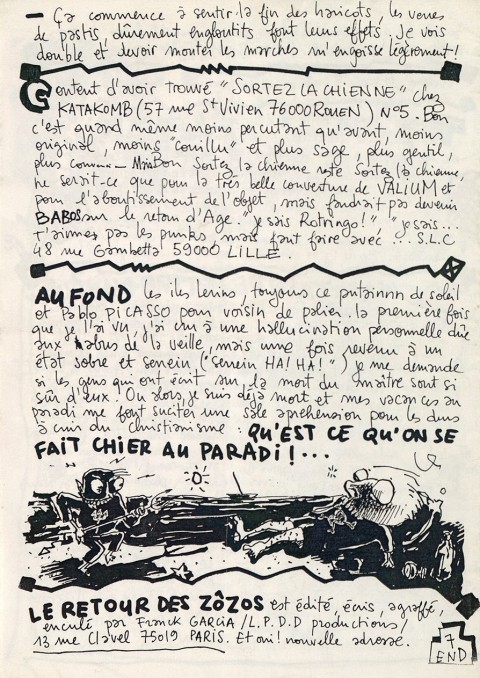 — Ça commence à sentir la fin des haricots, les verres
de pastis dûrement engloutits font leurs effets. Je vois
double et devoir monter les marches m'engoisse légèrement!
Content d'avoir trouvé "SORTEZ LA CHIENNE" chez
KATAKOMB (57 rue St Vivien 76000 ROUEN) N°5. Bon
c'est quand même moins percutant qu'avant, moins
original, moins "couillu" et plus sage, plus gentil,
plus commun — Mais Bon Sortez la chienne reste Sortez la chienne,
ne serait-ce que pour la très belle couverture de VALIUM et
pour l'aboutissement de l'objet, mais faudrait pas devenir
BABOS sur le retour d'Age. "je sais Rotringo!", "je sais...
t'aimes pas les punks, mais faut faire avec... S.L.C
48 rue Gambetta 59000 LILLE.
AU FOND les iles Lerins, toujours ce putainnn de soleil
et Pablo PICASSO pour voisin de palier. La première fois
que je l'ai vu, j'ai cru à une hallucination personnelle dûe
aux abus de la veille, mais une fois revenu à un
état sobre et serein ("serein HA! HA!") je me demande
si les gens qui ont écrit sur la mort du maître sont si
sûr d'eux. Ou alors, je suis déjà mort et mes vacances au
paradi me font suciter une sale apréhension pour les durs
à cuir du christianisme : QU'EST CE QU'ON SE
FAIT CHIER AU PARADI!...
LE RETOUR DES ZÔZOS est édité, écris, agraffé,
enculé par Franck GARCIA / L.P.D.D productions /
13 rue Clavel 75019 PARIS. Et oui! nouvelle adresse.
7
END